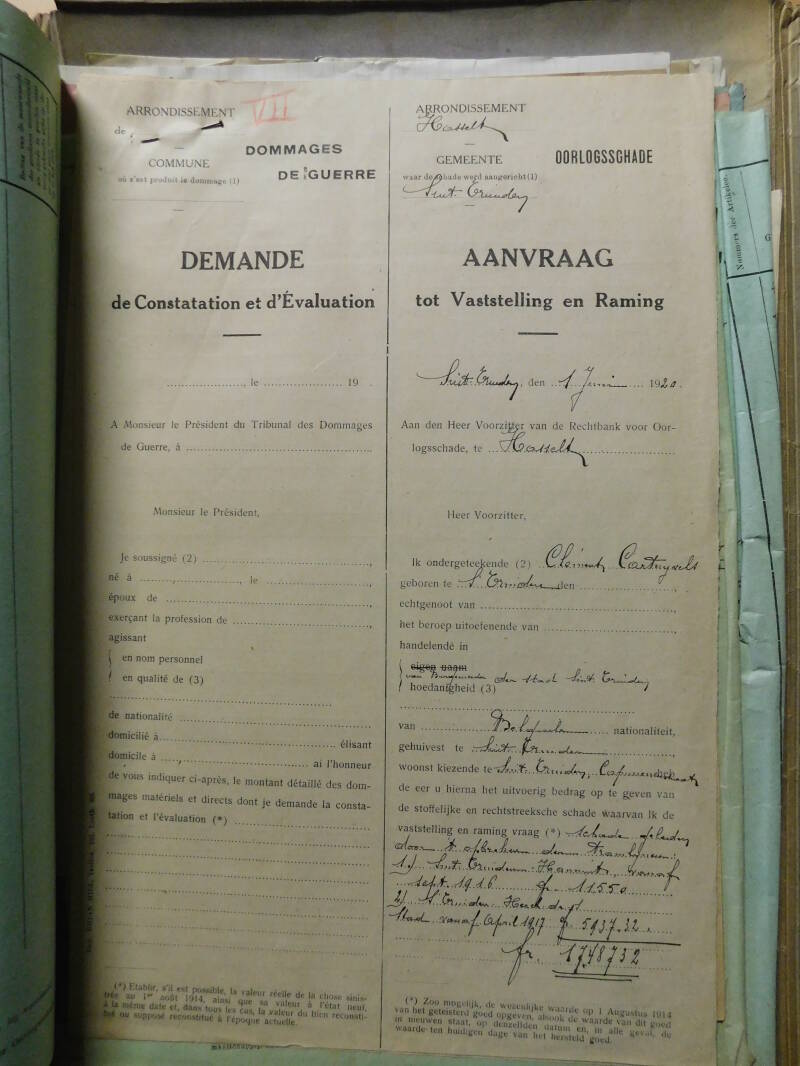 ARRONDISSEMENT VII
de
COMMUNE
où s'est produit le dommage (1)
DOMMAGES
DE GUERRE
DEMANDE
de Constatation et d'Évaluation
, le 19
A Monsieur le Président du Tribunal des Dommages
de Guerre, à
Monsieur le Président,
Je soussigné (2)
né à , le
époux de
exerçant la profession de
agissant
en nom personnel
en qualité de (3)
de nationalité
domicilié à élisant
domicile à ai l'honneur
de vous indiquer ci-après, le montant détaillé des dom-
mages matériels et directs dont je demande la consta-
tation et l'évaluation (*)
(*) Etablir, s'il est possible, la valeur réelle de la chose sinis-
trée au 1er août 1914, ainsi que sa valeur à l'état neuf,
à la même date et, dans tous les cas, la valeur du bien reconsti-
tué ou supposé reconstitué à l'époque actuelle.
ARRONDISSEMENT
Hasselt
GEMEENTE
waar de schade werd aangericht (1)
Sint Truiden
OORLOGSSCHADE
AANVRAAG
tot Vaststelling en Raming
Sint Truiden, den 1 Juni 1920.
Aan den Heer Voorzitter van de Rechtbank voor Oor-
logsschade, te Hasselt
Heer Voorzitter,
Ik ondergeteekende (2) Clément Cartuyvels
geboren te St Truiden den
echtgenoot van
het beroep uitoefenende van
handelende in
eigen naam
van Burgemeester der stad Sint Truiden
hoedanigheid (3)
van Belgische nationaliteit,
gehuivest te Sint Truiden
woonst kiezende te Sint Truiden,
de eer u hierma het uitvoerig bedrag op te geven van
de stoffelijke en rechtstreeksche schade waarvan ik de
vaststelling en raming vraag (*) schade geleden
door 't opbreken der tramlijnen:
1.) Sint Truiden-Hannut, vanaf
sept. 1916 fr 11550
2) St Truiden Herck de st
Stad vanaf April 1917 fr 5937.32
fr. 17487 32
(*) Zoo mogelijk, de wezenlijke waarde op 1 Augustus 1914
van het geteisterd goed opgeven, alsook de waarde van dit goed
in nieuwen staat, op denzelfden datum en, in alle geval, de
waarde ten huidigen dage van het hersteld goed.
Nummers der Artikelen